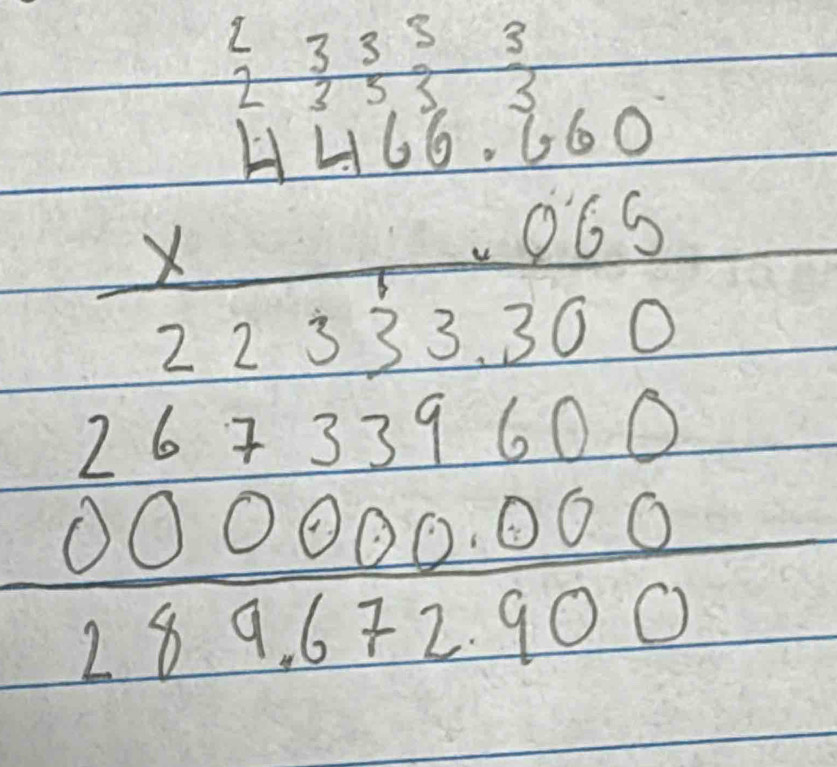 2 3 3 3 3
2 3 3 3 3
4466.660
x .065
22333.300
267339600
000000.000
289.672.900